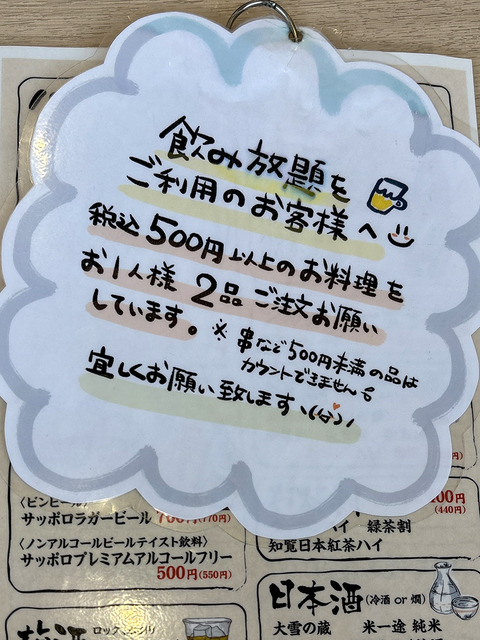 飲み放題を
ご利用のお客様へ
税込500円以上のお料理を
お1人様 2品 ご注文お願い
しています。
※串など500円未満の品は
カウントできません
宜しくお願い致します
〈ビンビール〉
サッポロラガービール 700円(770円)
〈ノンアルコールビールテイスト飲料〉
サッポロプレミアムアルコールフリー
500円(550円)
400円
(440円)
ハイ 緑茶割
知覧日本紅茶ハイ
日本酒(冷酒 or 燗)
大雪の蔵 米一途 純米